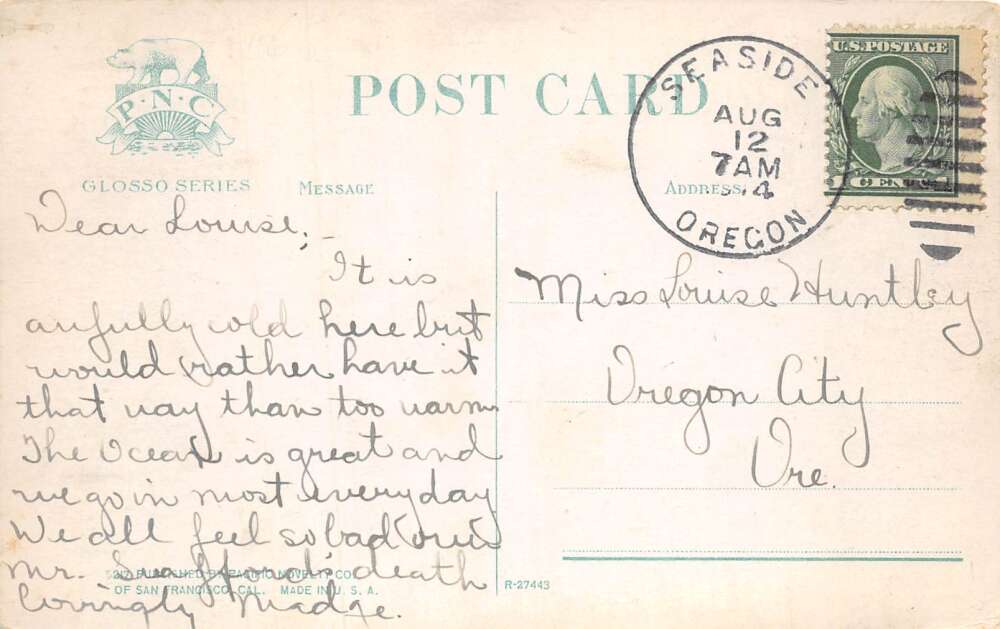 P·N·C
GLOSSO SERIES
POST CARD
MESSAGE
ADDRESS
SEASIDE
AUG
12
7AM
14
OREGON
U.S. POSTAGE
1 CENT 1
Dear Louise,
It is
awfully cold here but
would rather have it
that way than too warm
The Ocean is great and
we go in most every day
We all feel so bad over
Mr. death
Lovingly Madge.
5217 PUBLISHED BY PACIFIC NOVELTY CO.
OF SAN FRANCISCO, CAL. MADE IN U. S. A.
R-27443
Miss Louise Huntley
Oregon City
Ore.